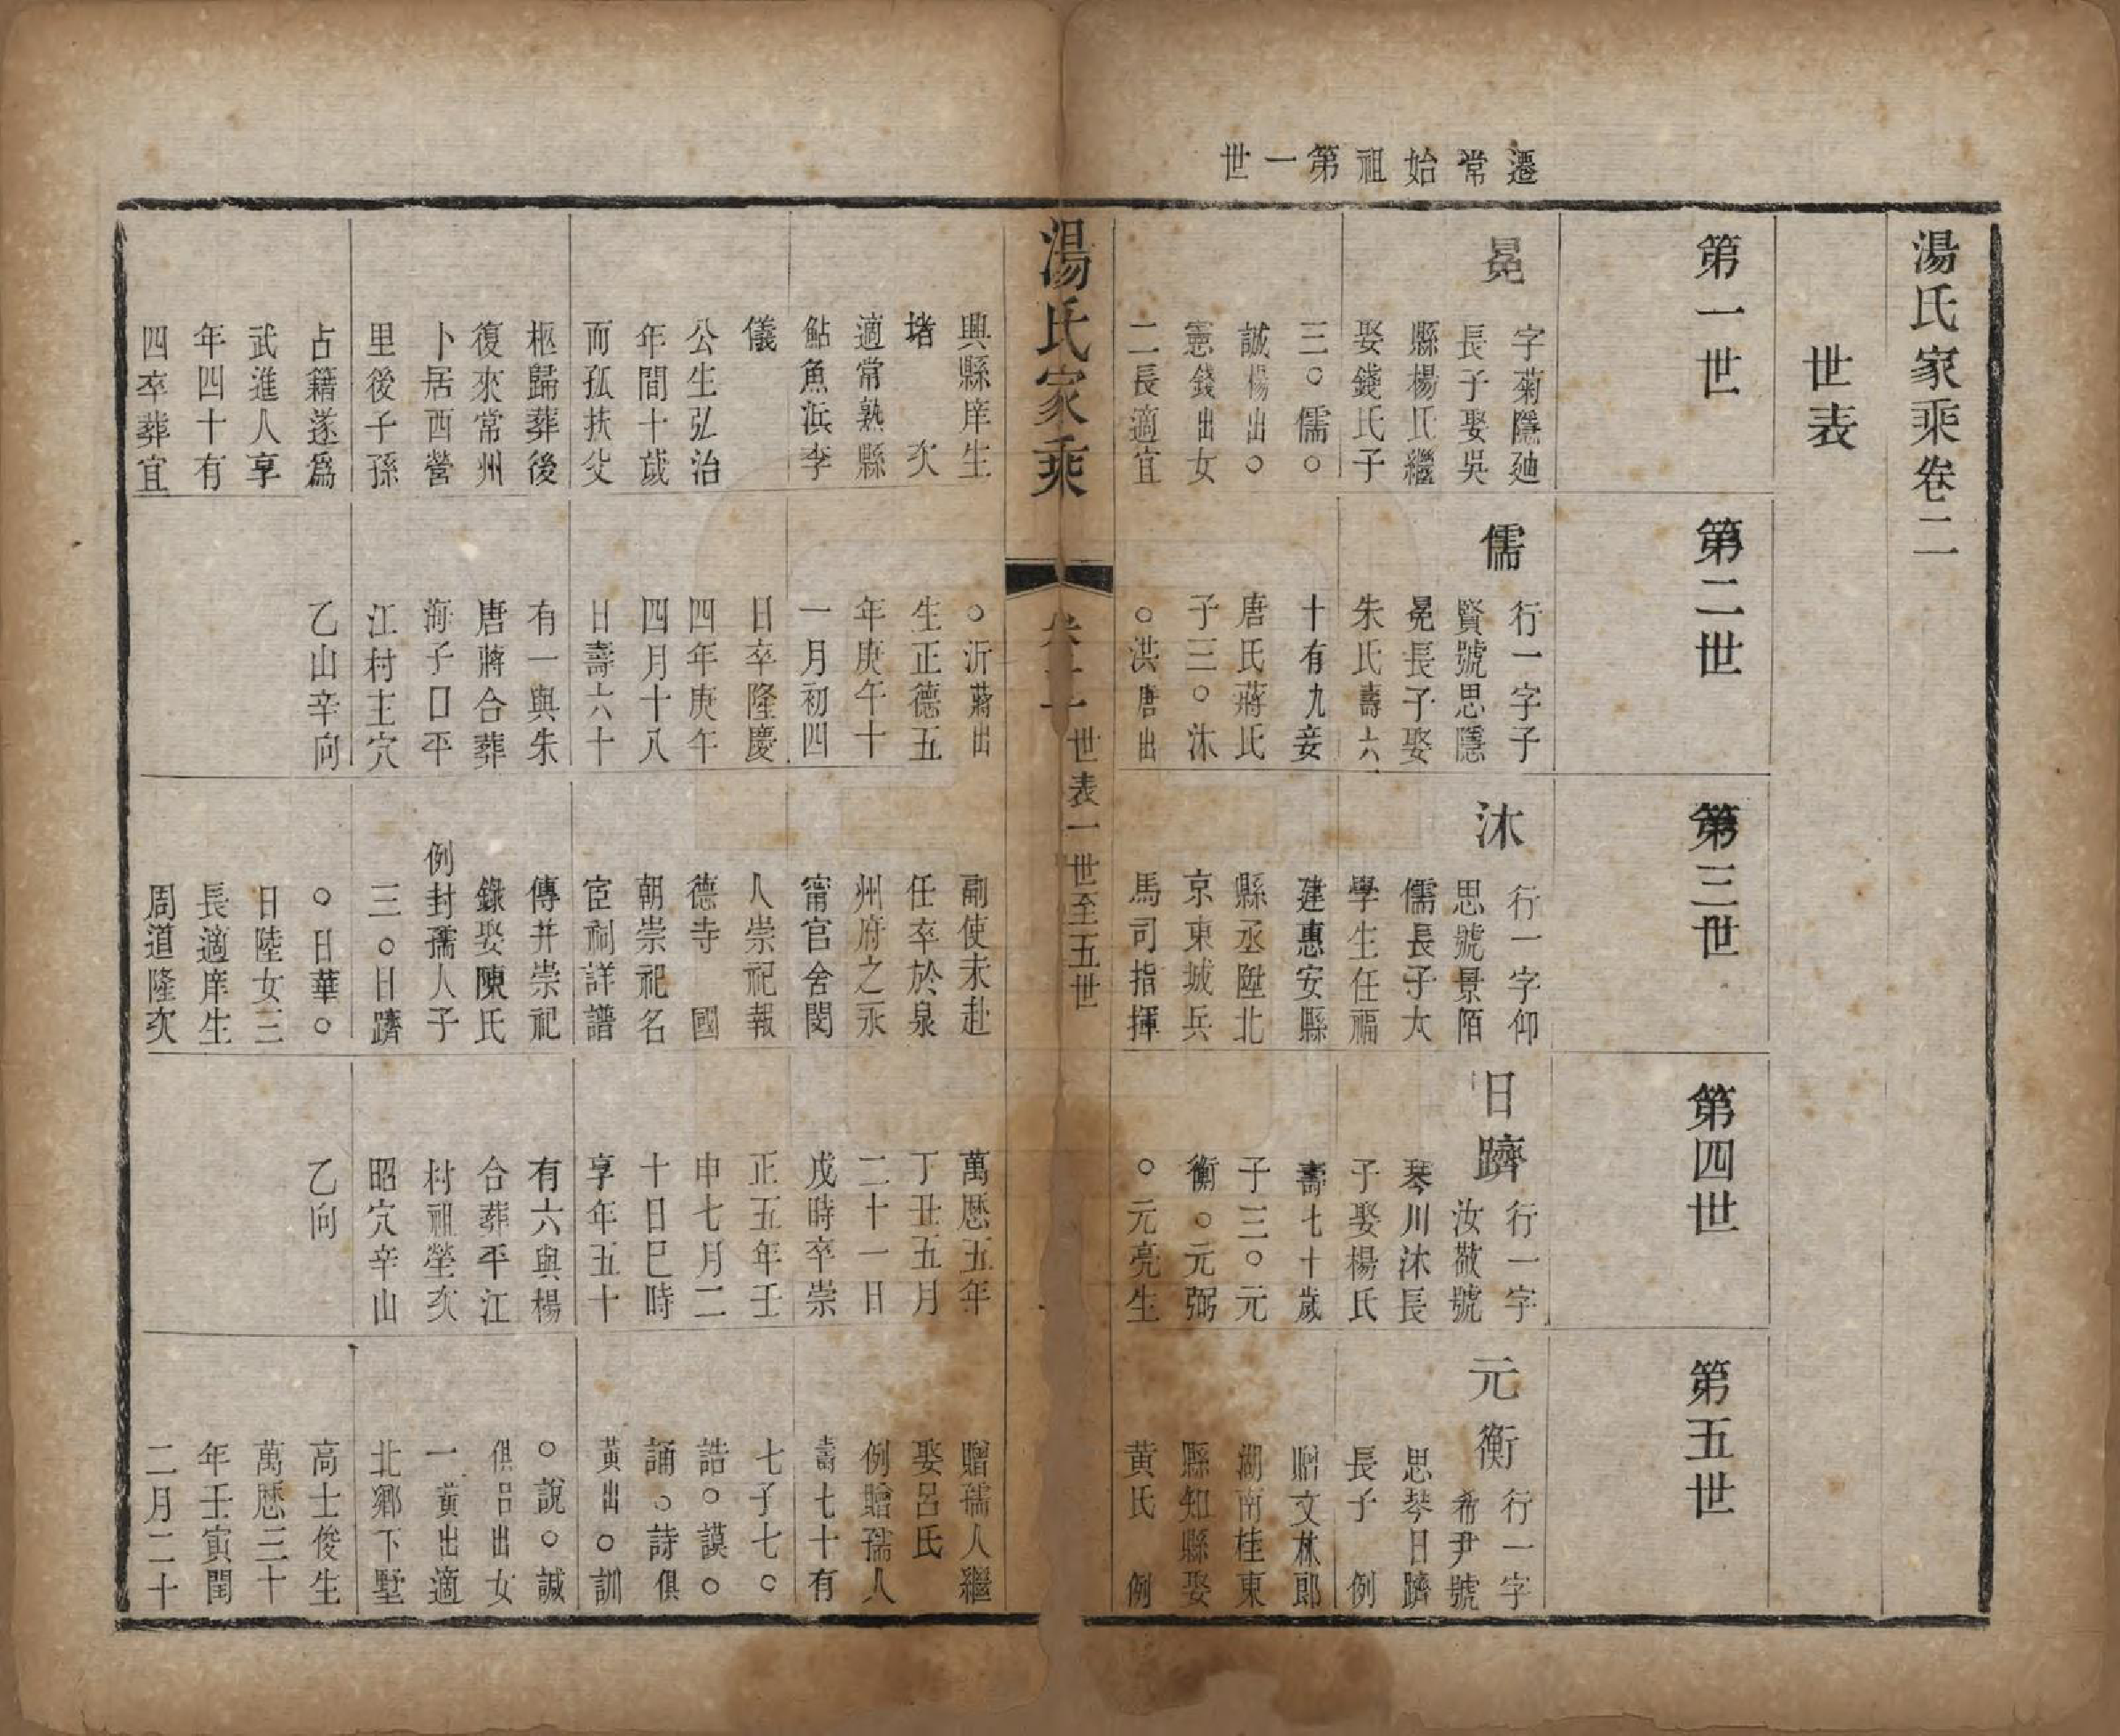 遷常始祖第一世
湯氏家乘卷二
世表
第一世
冕
字菊隱廸
長子娶吳
縣楊氏繼
娶錢氏子
三○儒○
誠楊出○
憲錢出女
二長適宜
興縣庠生
堵　次
適常熟縣
鮎魚浜李
儀
公生弘治
年間十歲
而孤扶父
柩歸葬後
復來常州
卜居西營
里後子孫
占籍遂爲
武進人享
年四十有
四卒葬宜
第二世
儒
行一字子
賢號思隱
冕長子娶
朱氏壽六
十有九妾
唐氏蔣氏
子三○沐
○洪唐出
○沂蔣出
生正德五
年庚午十
一月初四
日卒隆慶
四年庚午
四月十八
日壽六十
有一與朱
唐蔣合葬
海子口平
江村主穴
乙山辛向
第三世
沐
行一字仰
思號景陌
儒長子太
學生任福
建惠安縣
縣丞陞北
京東城兵
馬司指揮
副使未赴
任卒於泉
州府之永
甯官舍閔
人崇祀報
德寺　國
朝崇祀名
宦祠詳譜
傳并崇祀
錄娶陳氏
例封孺人子
三○日躋
○日華○
日陞女三
長適庠生
周道隆次
第四世
日躋
行一字
汝敬號
琴川沐長
子娶楊氏
壽七十歲
子三○元
衡○元弼
○元亮生
萬曆五年
丁丑五月
二十一日
戌時卒崇
正五年壬
申七月二
十日巳時
享年五十
有六與楊
合葬平江
村祖塋亥
昭穴辛山
乙向
第五世
元衡
行一字
希尹號
思琴日躋
長子　例
贈文林郎
湖南桂東
縣知縣娶
黃氏　例
贈孺人繼
娶呂氏
例贈孺人
壽七十有
七子七○
誥○謨○
誦○詩俱
黃出○訓
○說○誠
俱呂出女
一黃出適
北鄉下墅
高士俊生
萬曆三十
年壬寅閏
二月二十
湯氏家乘
世表一世至五世